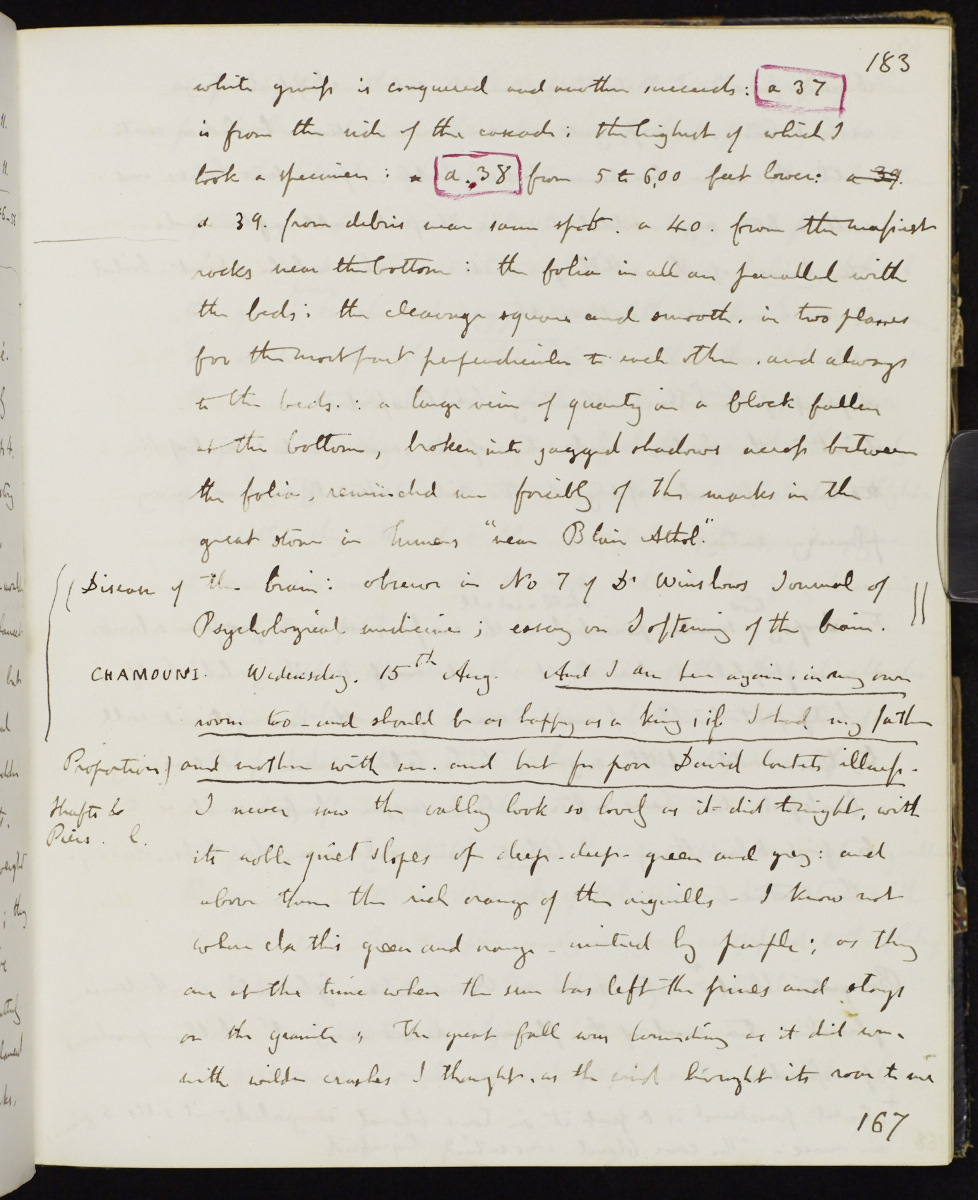 183
white gneiss is conquered and another succeeds: a 37
is from the side of the cascade: the highest of which I
took a specimen: a a. 38 from 5 to 6,00 feet lower: a 39.
a 39. from debris near same spot. a 40. from the massiest
rocks near the bottom: the folia in all are parallel with
the beds: the cleavage square and smooth. in two planes
for the most part perpendicular to each other. and always
to the beds.: a large vein of quartz in a block fallen
at the bottom, broken into jagged shadows across between
the folia, reminded me forcibly of the marks in the
great stone in Turners "near Blair Athol".
((Disease of the brain: observe in No 7 of Dr Winslows Journal of
Psychological medicine; essay on Softening of the brain. ))
CHAMOUNI. Wednesday. 15th Aug. And I am here again. in my own
room too - and should be as happy as a king; if I had my father
Proportion) and mother with me. and but for poor David Coutets illness.
Shafts to
Piers. l.
I never saw the valley look so lovely as it did tonight, with
its noble quiet slopes of deep-deep- green and grey: and
above them the rich orange of the aiguilles - I know not
where else this green and orange - united by purple; as they
are at the time when the sun has left the pines and stays
on the granite; The great fall was sounding as it did
with wilder crashes I thought, as the wind brought its roar to me
167